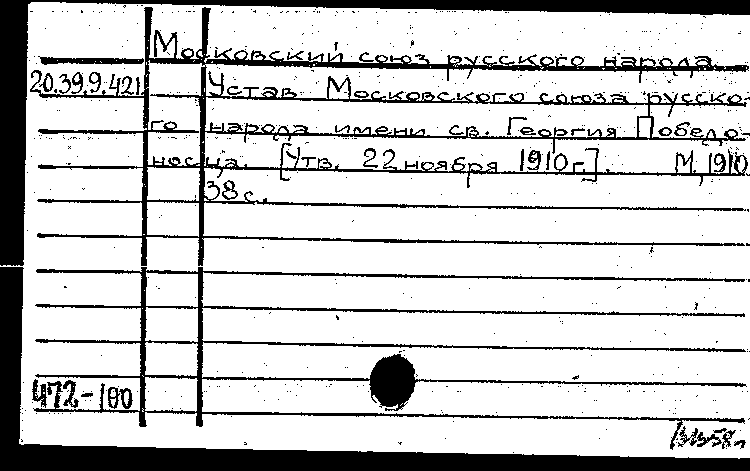 Московский союз русского народа
20.39.9.421
Устав Московского союза русско-
го народа имени св. Георгия Победо-
носца. [Утв. 22 ноября 1910 г.]. М, 1910
38 с.
472-100